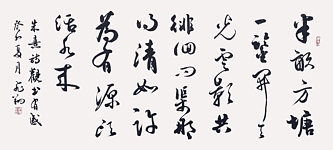 半畝方塘
一鑒開天
光雲影共
徘徊問渠那
得清如許
為有源頭
活水來
朱熹詩觀書有感
夏月